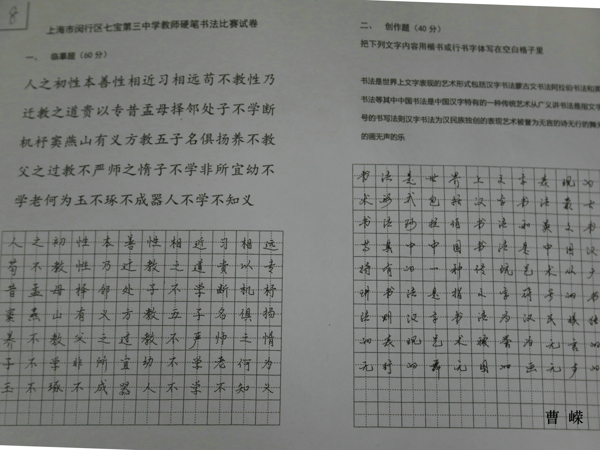 8
上海市闵行区七宝第三中学教师硬笔书法比赛试卷
一、 临摹题(60分)
人之初性本善性相近习相远苟不教性乃
迁教之道贵以专昔孟母择邻处子不学断
机杼窦燕山有义方教五子名俱扬养不教
父之过教不严师之惰子不学非所宜幼不
学老何为玉不琢不成器人不学不知义
人之初性本善性相近习相远
苟不教性乃迁教之道贵以专
昔孟母择邻处子不学断机杼
窦燕山有义方教五子名俱扬
养不教父之过教不严师之惰
子不学非所宜幼不学老何为
玉不琢不成器人不学不知义
二、 创作题(40分)
把下列文字内容用楷书或行书字体写在空白格子里
书法是世界上文字表现的艺术形式包括汉字书法蒙古文书法阿拉伯书法和英
书法等其中中国书法是中国汉字特有的一种传统艺术从广义讲书法是指文字
号的书写法则汉字书法为汉民族独创的表现艺术被誉为无言的诗无行的舞无
的画无声的乐
书法是世界上文字表现的
术形式包括汉字书法蒙古
书法阿拉伯书法和英文书
等其中中国书法是中国汉
特有的一种传统艺术从广
讲书法是指文字符号的书
法则汉字书法为汉民族独
的表现艺术被誉为无言的
无行的舞无图的画无声的
曹 嵘